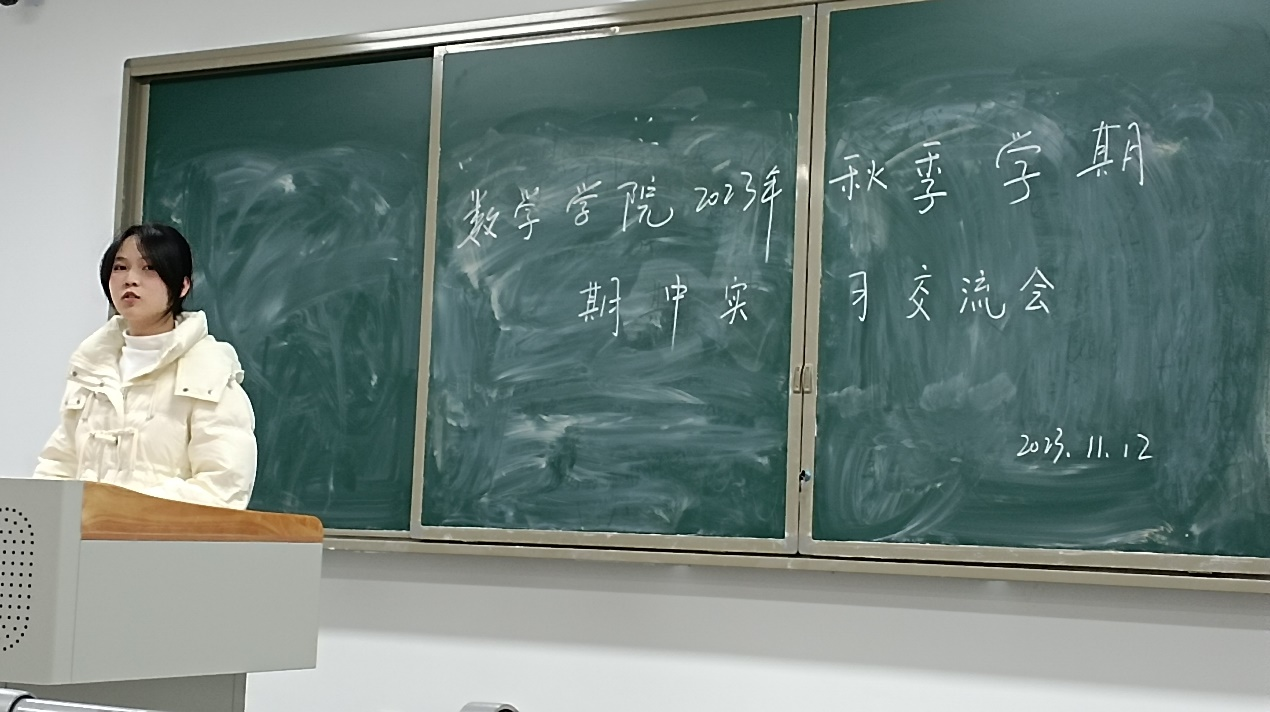 数学学院2023年秋季学期
期中实习交流会
2023.11.12